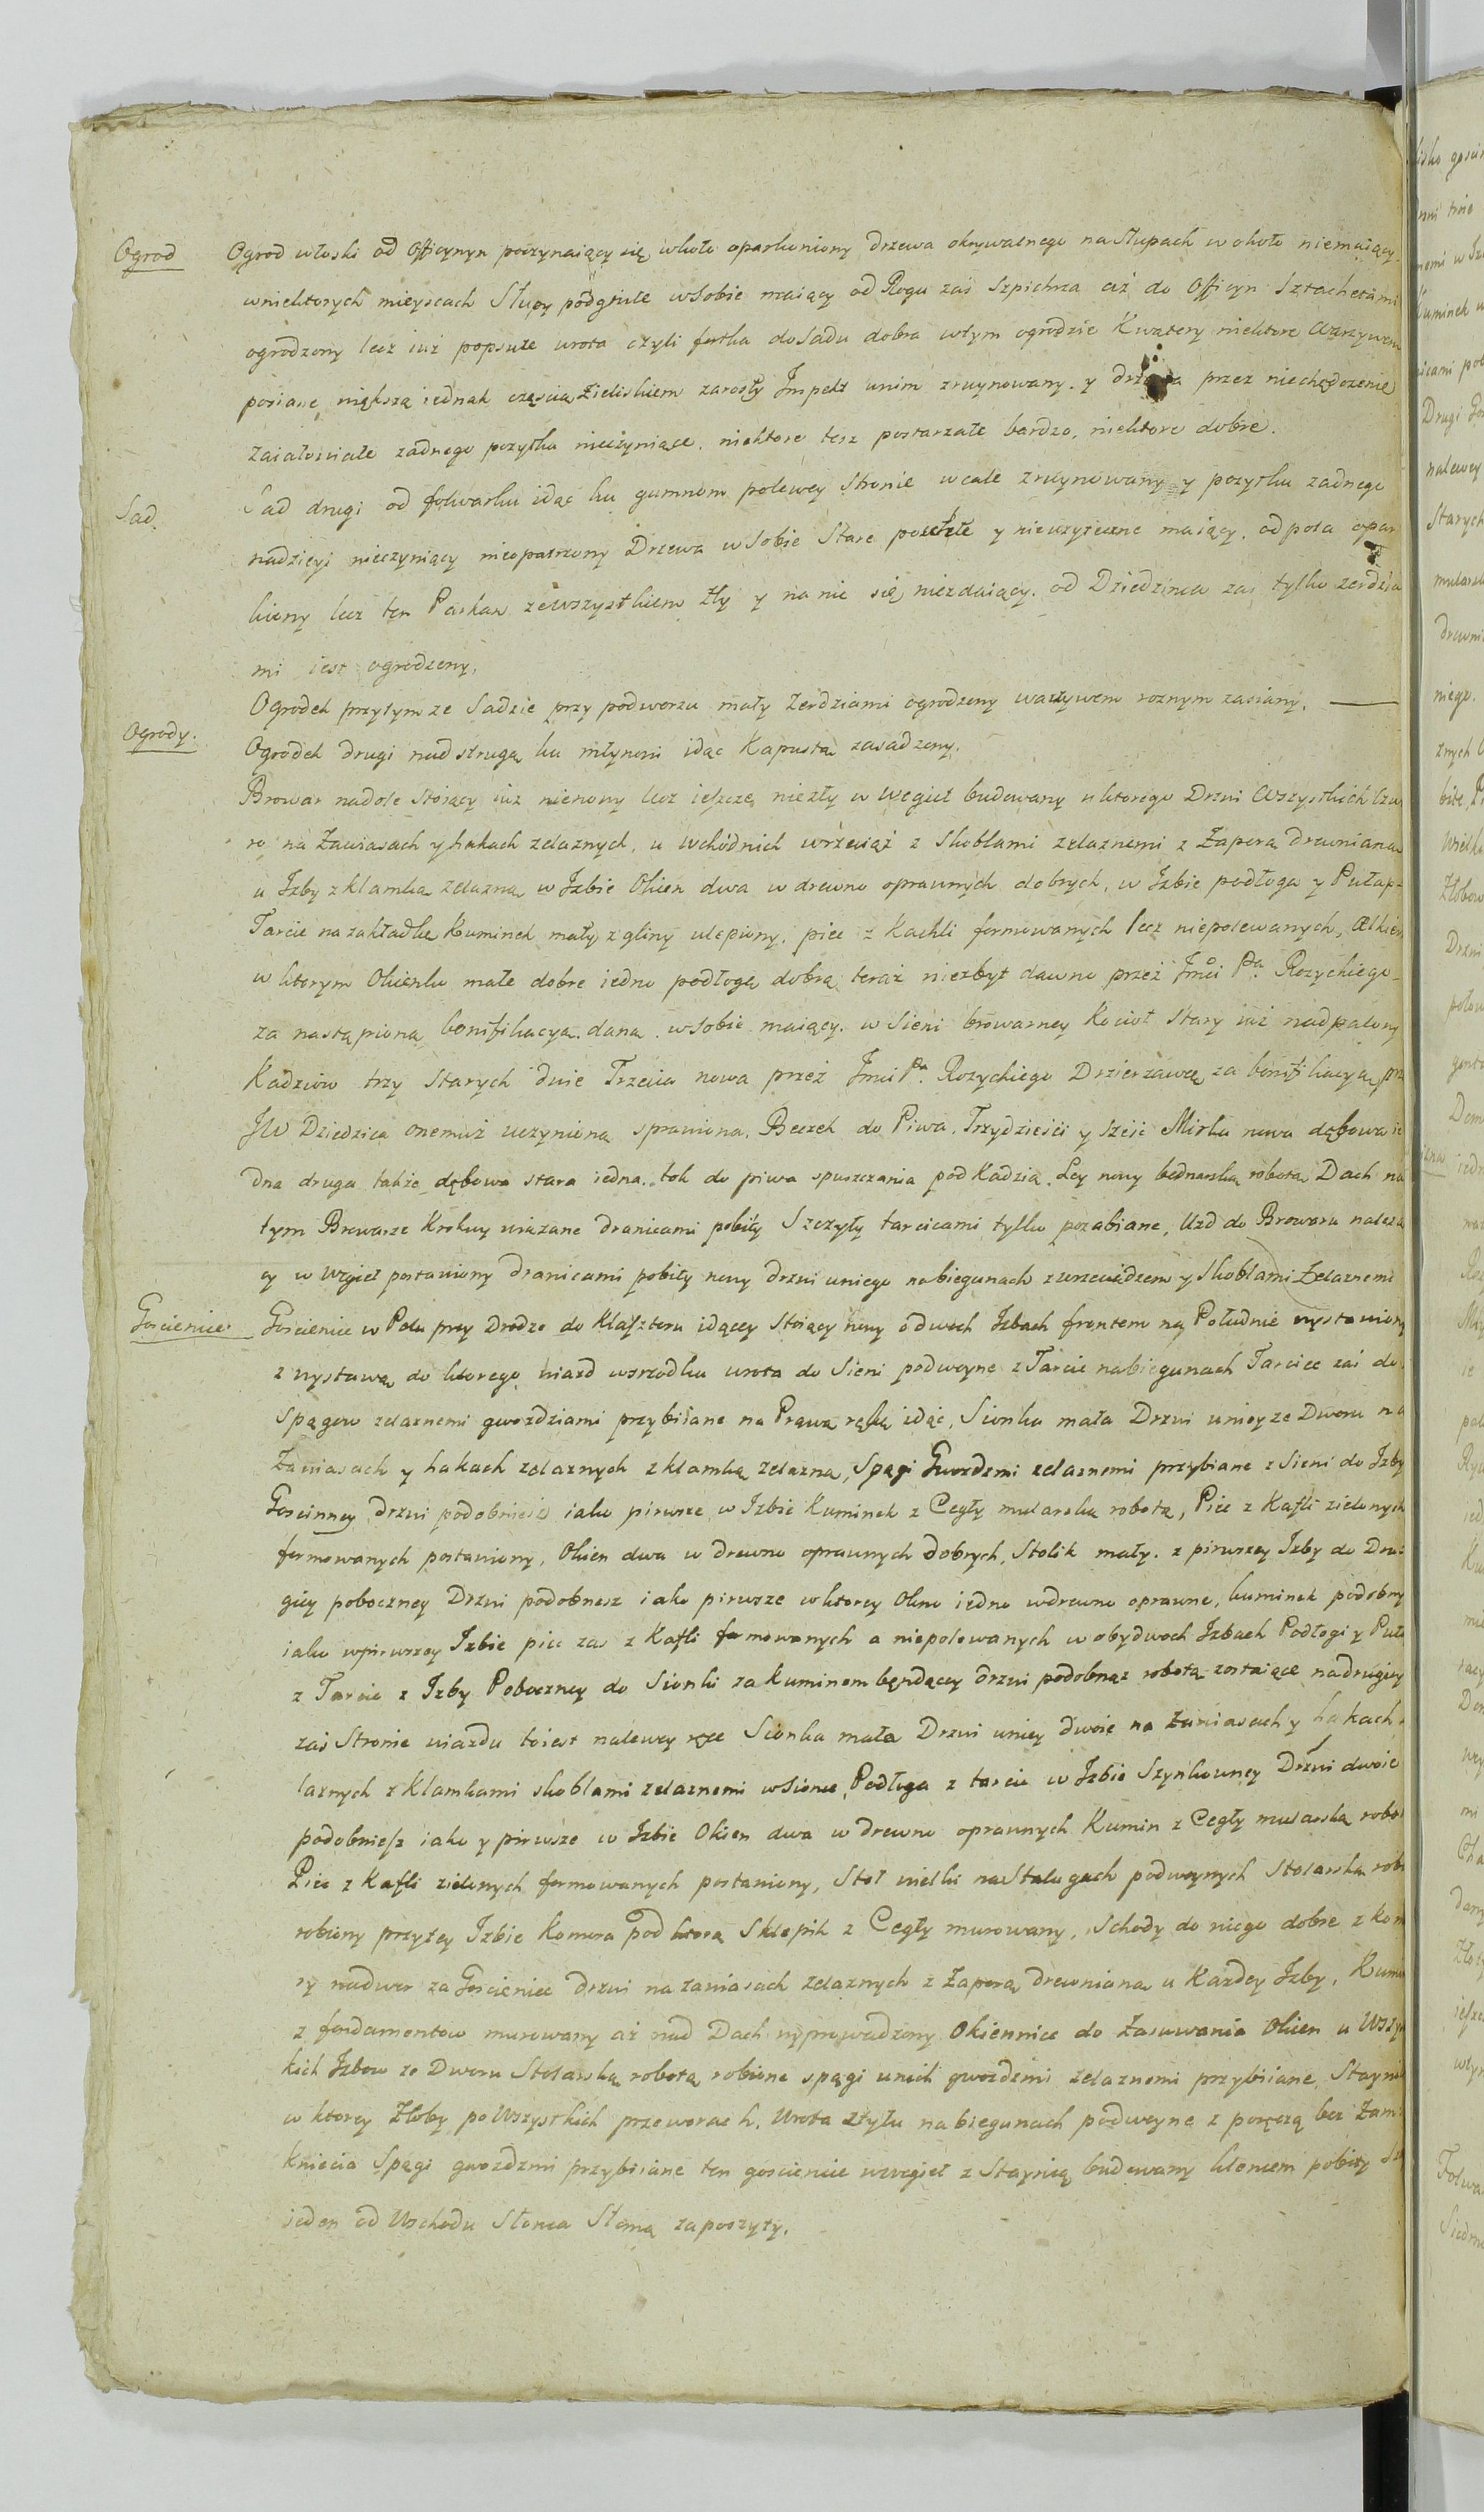 Ogrod
Ogrod włoski od Officynyn poczynaiący się wkoło oparkoniony drzewa okrywalnego na słupach w około niemaiący
wniektorych mieyscach Słupy podgniłe wsobie maiący od Rogu zaś Szpichrza aż do Officyn Sztachetami
ogrodzony lecz iuż popsute wrota czyli fortka do sadu dobra wtym ogrodzie Kwatery niektore Warzywem
posiane większą iednak częscią Zieliskiem zarosły Inspekt unim zruynowany. y drzewa przez niechędozenie
zaiałowiałe zadnego pozytku nieczyniące. niektore tesz postarzałe bardzo, niektore dobre.
Sad.
Sad drugi od folwarku idąc ku gumnom polewey stronie wcale zruynowany y pozytku zadnego
nadzieyi nieczyniący nieopatrzony Drzewa wsobie Stare y nieuzyteczne maiący. od pola opar
kiony lecz ten Parkan zewszystkiem zły y na nic się niezdaiący. od Dziedzinca zaś tylko zerdzia
mi iest ogrodzony.
Ogrodek przytymze Sadzie przy podworzu mały Zerdziami ogrodzony warzywem roznym zasiany.
Ogrody.
Ogrodek drugi nad strugą ku młynowi idąc Kapustą zasadzony.
Browar nadole stoiący iuż nienowy lecz ieszcze niezły w węgieł budowany u ktorego Drzwi Wszystkich Czw
ro na Zawiasach y hakach zelaznych, u wchodnich wrzeciąz z Skoblami zelaznemi z Zaporą drewnianą
u Izby z klamką zelazną w Izbie Okien dwa w drewno oprawnych dobrych, w Izbie podłoga y Pułap
Tarcic na zakładkę Kuminek mały z gliny ulepiony, piec z Kachli formowanych lecz niepolewanych, alkierz
w ktorym Okienko małe dobre iedno podłogę dobrą teraz niezbyt dawno przez Jmci Pa. Rozyckiego
za nastąpioną bonifikacyą daną wsobie maiący. w Sieni browarney Kocioł stary iuż nadpalony
Kadziow trzy Starych dwie Trzecia nowa przez Jmci Pa. Rozyckiego Dzierzawcę za bonifikacyą prz
JW Dziedzica onemuż uczynioną sprawiona. Beczek do Piwa Trzydzieści y sześć Mirka nowa dębowa ie
dna druga także dębowa stara iedna. tok do piwa spuszczania pod Kadzią. Ley nowy bednarską robotą Dach na
tym Browarze Krokwy wiązane dranicami pobity Szczyty tarcicami tylko pozabiiane, Uzd do Browaru nalezą
cy w węgieł postawiony dranicami pobity nowy drzwi uniego na biegunach z wrzeciądzem y Skoblami Zelaznemi
Goscieniec
Goscieniec w Polu przy Drodze do Klasztoru idącey Stoiący nowy o dwoch Izbach frontem na Południe wystawiony
z wystawą do ktorego wiazd wszrodku wrota do Sieni podwoyne z Tarcic nabiegunach Tarcice zaś do
Spągow zelaznemi gwozdziami przybiiane na Prawą rękę idąc, Sionka mała Drzwi uniey ze Dworu na
Zawiasach y hakach zelaznych z klamką zelazną, Spągi Gwozdzmi zelaznemi przybiane z Sieni do Izby
Goscinney drzwi podobnieisz iako pirwsze w Izbie Kuminek z Cegły mularską robotą, Piec z Kafli zielonych
formowanych postawiony, Okien dwa w drewno oprawnych dobrych, Stolik mały. z pirwszey Izby do Dru-
giey poboczney Drzwi podobnesz iako pirwsze wktorey Okno iedno wdrewno oprawne, kuminek podobny
iako wpirwszey Izbie piec zaś z Kafli formowanych a niepolewanych w obydwoch Izbach Podłogi y Puła
z Tarcic z Izby Poboczney do Sionki za kuminem będącey drzwi podobnąz robotą zostaiące nadrugiey
zaś Stronie wiazdu toiest nalewey ręce Sionka mała Drzwi uniey dwoie na Zawiasach y hakach
laznych z klamkami skoblami zelaznemi wSionce, Podłoga z tarcic w Izbie Szynkowney Drzwi dwoie
podobniesz iako y pirwsze w Izbie Okien dwa w drewno oprawnych Kumin z Cegły mularską robo
Piec z Kafli zielonych formowanych postawiony, Stoł wielki na Stalugach podwoynych Stolarską rob
robiony przytey Izbie Komora pod ktorą Sklepik z Cegły murowany, Schody do niego dobre z kom
ry nadwor za Goscieniec drzwi na zawiasach zelaznych z Zaporą drewnianą u Kazdey Izby, Kumin
z fundamentow murowany aż nad Dach wyprowadzony Okiennice do Zasuwania Okien u Wszy
kich Izbow ze Dworu Stolarską robotą robione spągi unich gwozdzmi zelaznemi przybiiane, Staynia
w ktorey Złoby po Wszystkich przeworach, Wrota ztyłu nabiegunach podwoyne z poręczą bez Zam
knięcia Spągi gwozdzmi przybiiane ten goscieniec wwęgieł z Staynią budowany kloncem pobity
ieden od Wschodu Słonca Słomą zaposzyty.